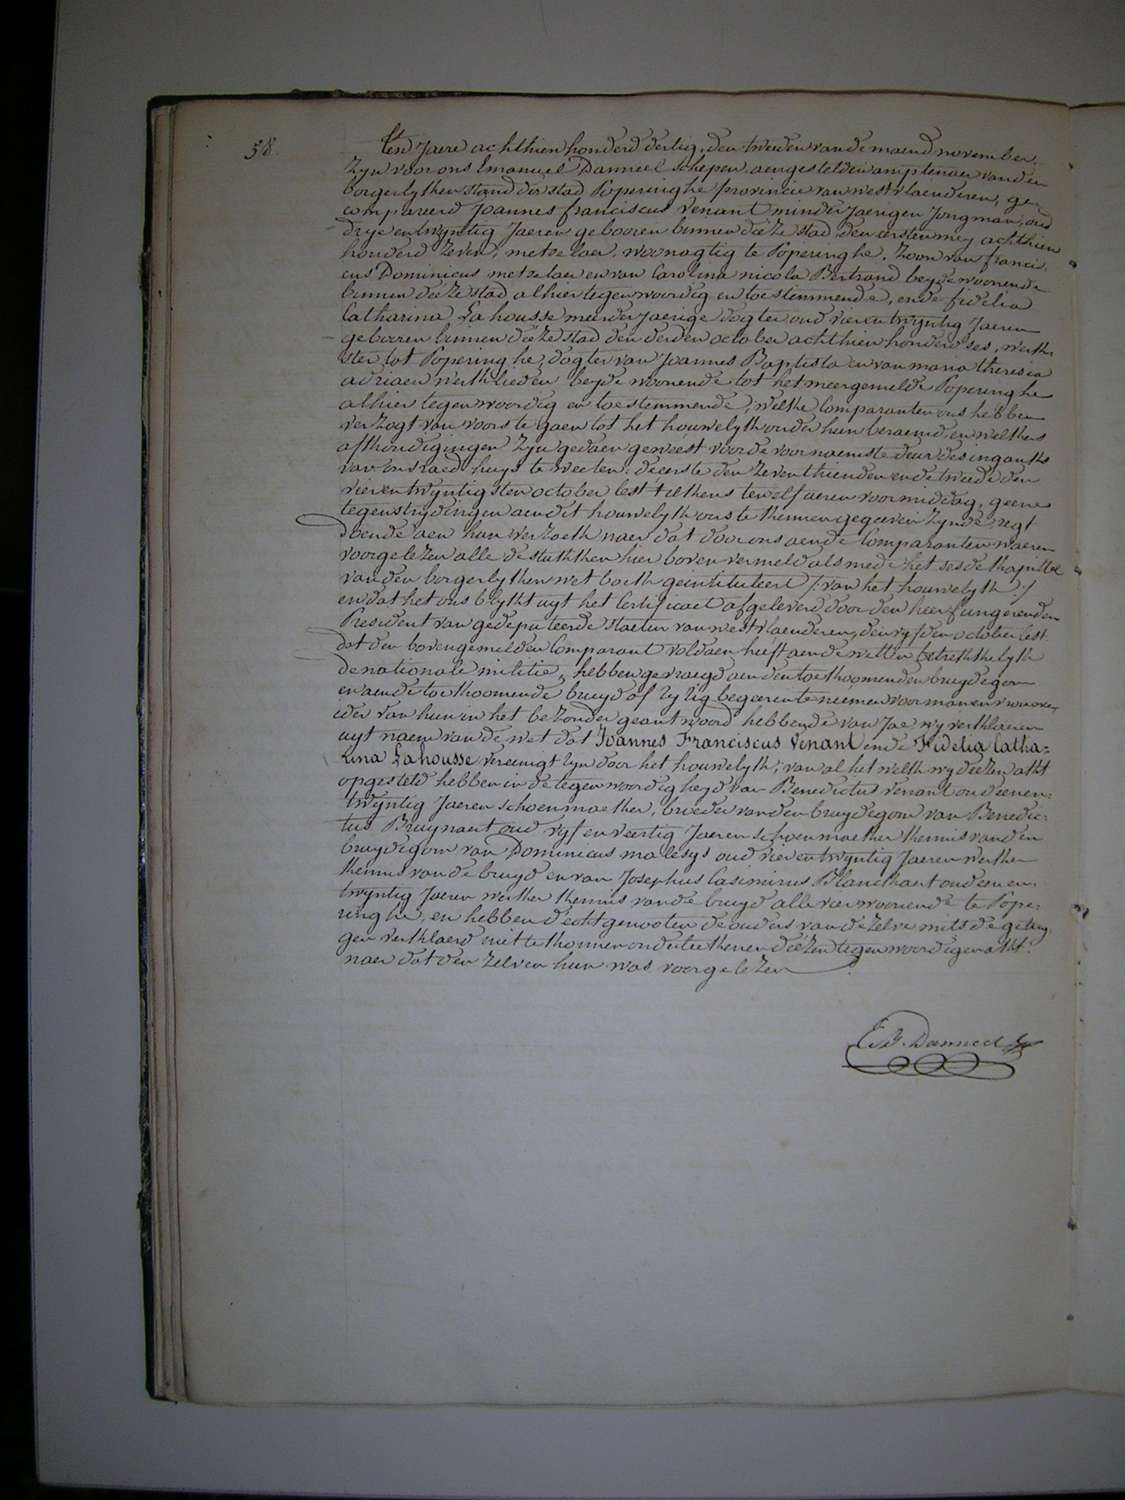 58.
ten Jaere achthien honderd dertig, den tweeden van de maend november,
zyn voor ons Emanuel Danneel Schepen aengestelden amptenaer van den
borgerlyken stand der stad Poperinghe provincie van westvlaenderen, ge-
compareerd Joannes franciscus Venant minder jaerigen Jongman, oud
drye en twyntig Jaeren gebooren binnen deeze stad den eersten mey achthien
honderd zeven, metselaer, woonagtig te Poperinghe, zoon van franci-
cus Dominicus metselaer en van Carolina nicola Bertrand beyde woonende
binnen deeze stad alhier tegenwoordig en toestemmende, ende fidelia
Catharina Lahousse meerder jaerige dogter oud vier en twyntig Jaeren
gebooren binnen deeze stad den derden october achthien honderd ses, werk-
ster tot Poperinghe, dogter van Joannes Baptista en van maria theresia
adriaen werklieden beyde woonende tot het meergemelde Poperinghe
alhier tegenwoordig en toestemmende, welke Comparanten ons hebben
verzogt van voorts te gaen tot het houwelyk onder hun beraemd, en welkers
afkondigingen zyn gedaen geweest voor de voornaemste deur des inganks
van ons raedhuys te weeten: de eerste den zeventhienden ende tweede den
vier en twyntigsten october lest telkens ten elf uren voormiddag, geene
tegenstrydingen aen dit houwelyk ons te kennen gegeeven zynde regt
doende aen hun verzoek naer dat door ons aen de Comparanten waeren
voorgelezen alle de stukken hier boven vermeld als mede het sesde kapittel
van den borgerlyken wet boek geintituleert /: van het houwelyk :/
en dat het ons blykt uyt het Certificaet afgeleverd door den heer fungerenden
President van gedeputeerde staeten van westvlaenderen, den vyfden october lest
dat den bovengemelden Comparant voldaen heeft aen de wetten betrekkelyk
de nationale militie, hebben gevraegd aen den toekoomenden bruydegom
en aen de toekoomende bruyd of zy zig begeeren te neemen voor man en vrouwe,
ider van hun in het bezonder geantwoord hebbende van Jae wy verklaeren
uyt naem van de wet dat Joannes Franciscus Venant ende Fidelia Catha-
rina Lahousse vereenigt zyn door het houwelyk; van al het welk wy deezen akt
opgesteld hebben in de tegenwoordigheyd van Benedictus Venant oud een en
twyntig Jaeren schoenmaeker, broeder van den bruydegom van Benedic-
tus Bruynaert oud vyf en veertig Jaeren schoenmaeker kennis van den
bruydegom van Dominicus malesys oud vier en twyntig Jaeren werker
kennis van de bruyd en van Josephus Casimirus Planckaert oud een en
twyntig Jaeren werker kennis van de bruyd alle vier woonende te Pope-
ringhe, en hebben d'echtgenooten de ouders van de zelve mits de getuy-
gen verklaerd niet te konnen onderteekenen deezen tegenwoordigen akt.
naer dat den zelven hun was voorgelezen
E. J. Danneel